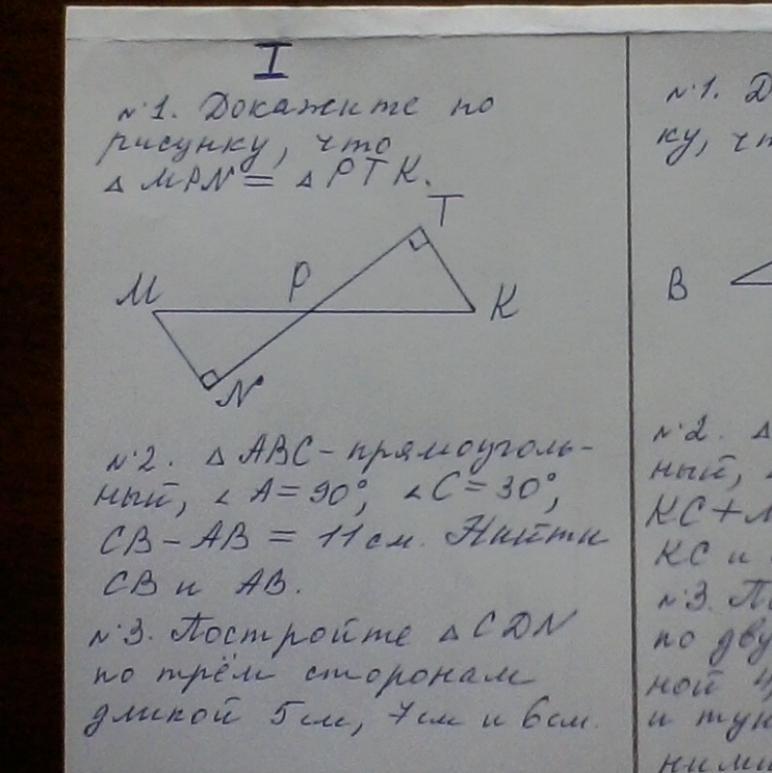 I
№1. Докажите по
рисунку, что
△ MPN = △ PTK.
T
M
P
K
N
№2. △ ABC - прямоуголь-
ный, ∠A = 90°, ∠C = 30°,
CB - AB = 11 см. Найти
CB и AB.
№3. Постройте △ CDN
по трём сторонам
длиной 5 см, 7 см и 6 см.
№1. Д
ку, чт
B
№2. △
ный, ∠
KC +
KC и
№3. По
по дву
ной 4,
и туп
ними